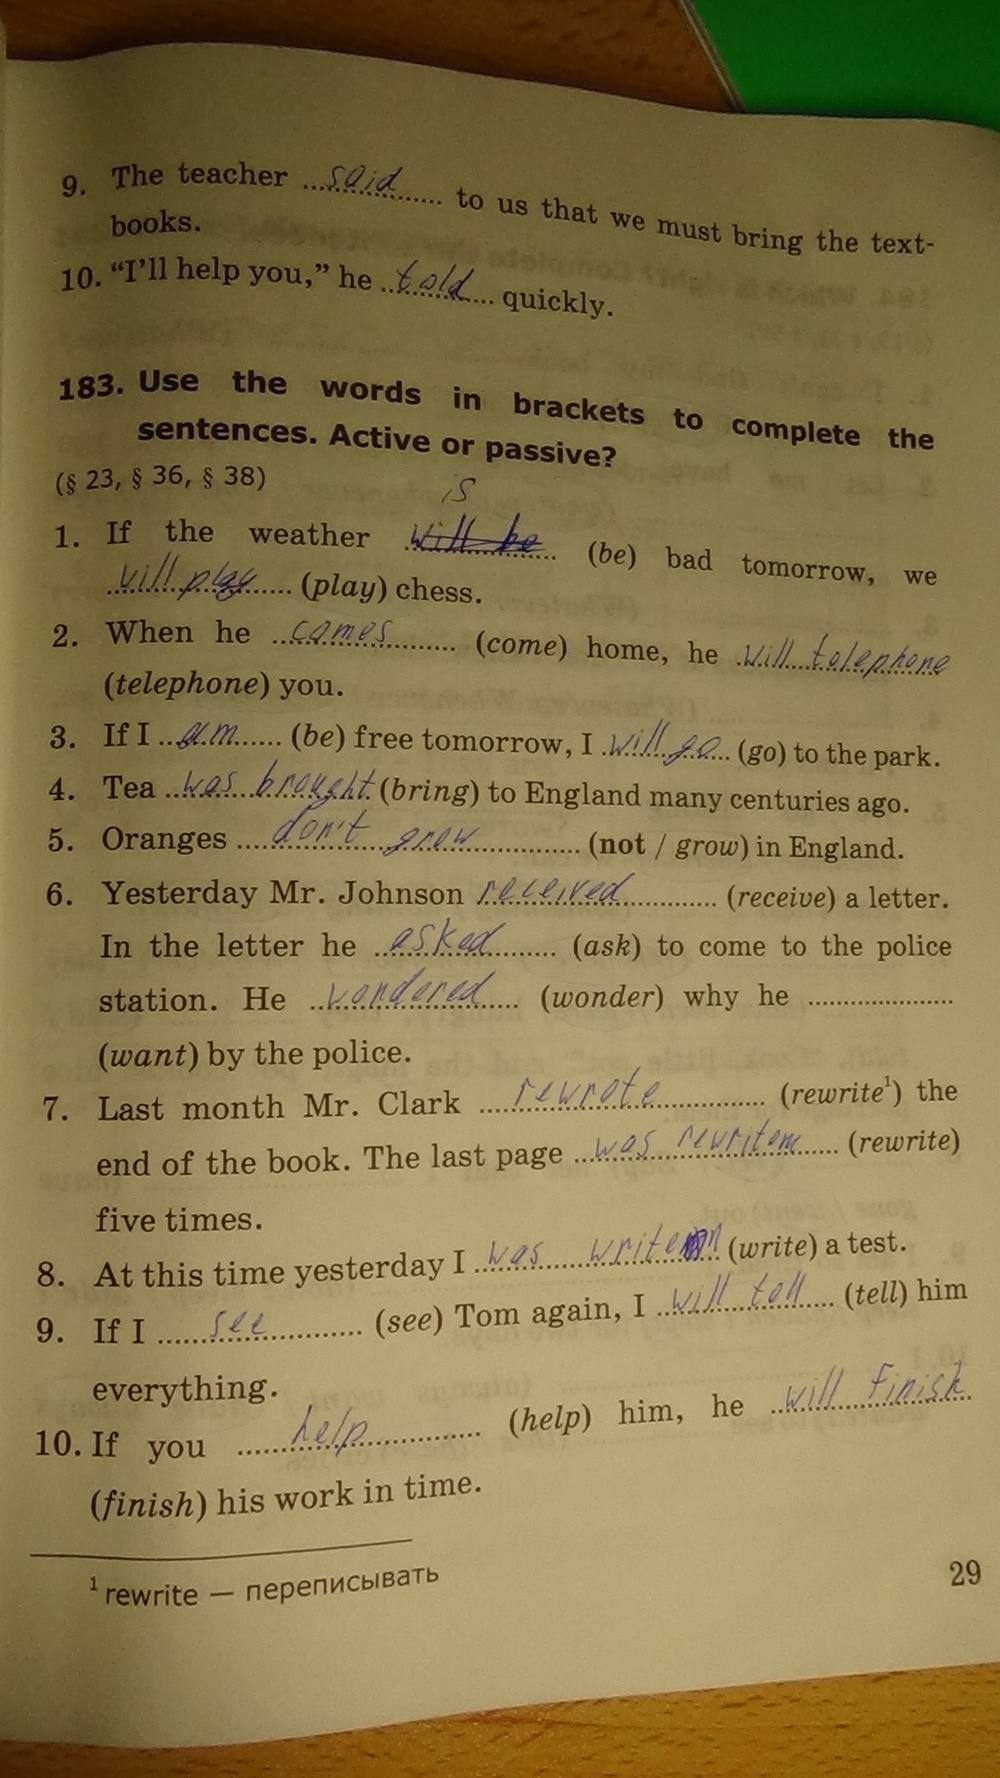 9. The teacher ...said... to us that we must bring the text-
books.
10. "I'll help you," he ...told... quickly.
183. Use the words in brackets to complete the
sentences. Active or passive?
(§ 23, § 36, § 38)
is
1. If the weather will be (be) bad tomorrow, we
will play (play) chess.
2. When he comes (come) home, he will telephone
(telephone) you.
3. If I am (be) free tomorrow, I will go (go) to the park.
4. Tea was brought (bring) to England many centuries ago.
5. Oranges don't grow (not / grow) in England.
6. Yesterday Mr. Johnson received (receive) a letter.
In the letter he asked (ask) to come to the police
station. He wondered (wonder) why he ....................
(want) by the police.
7. Last month Mr. Clark rewrote (rewrite¹) the
end of the book. The last page was rewritem (rewrite)
five times.
8. At this time yesterday I was writen (write) a test.
9. If I see (see) Tom again, I will tell (tell) him
everything.
10. If you help (help) him, he will finish
(finish) his work in time.
¹ rewrite — переписывать
29